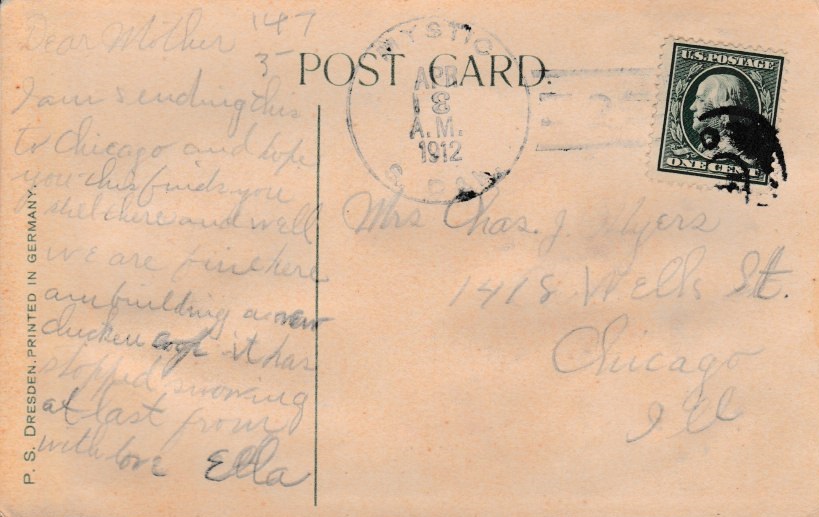 Dear Mother
147
3
I am sending this
to Chicago and hope
you this finds you
still there and well
we are fine here
am building a new
chicken coop it has
stopped snowing
at last from
with love Ella
POST CARD.
MYSTIC
APR
18
A.M.
1912
S. DAK.
U.S. POSTAGE
ONE CENT
Mrs Chas. J. Myers
1418 Wells St.
Chicago
Ill
P. S. DRESDEN. PRINTED IN GERMANY.